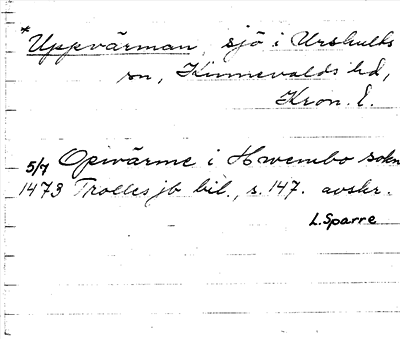 *Uppvärman, sjö i Urshults
sn, Kinnevalds hd,
Kron. l.
5/4 Opivärme i Hwembo sokn
1473 Trolles jb bil., s. 147. avskr.
L. Sparre